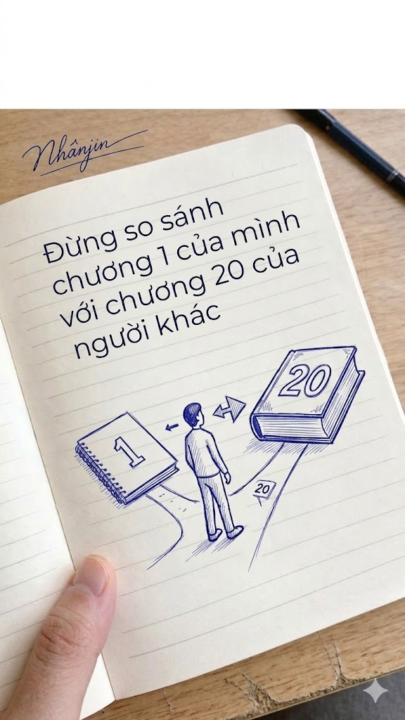 Nhânjin
Đừng so sánh
chương 1 của mình
với chương 20 của
người khác
1
20
20